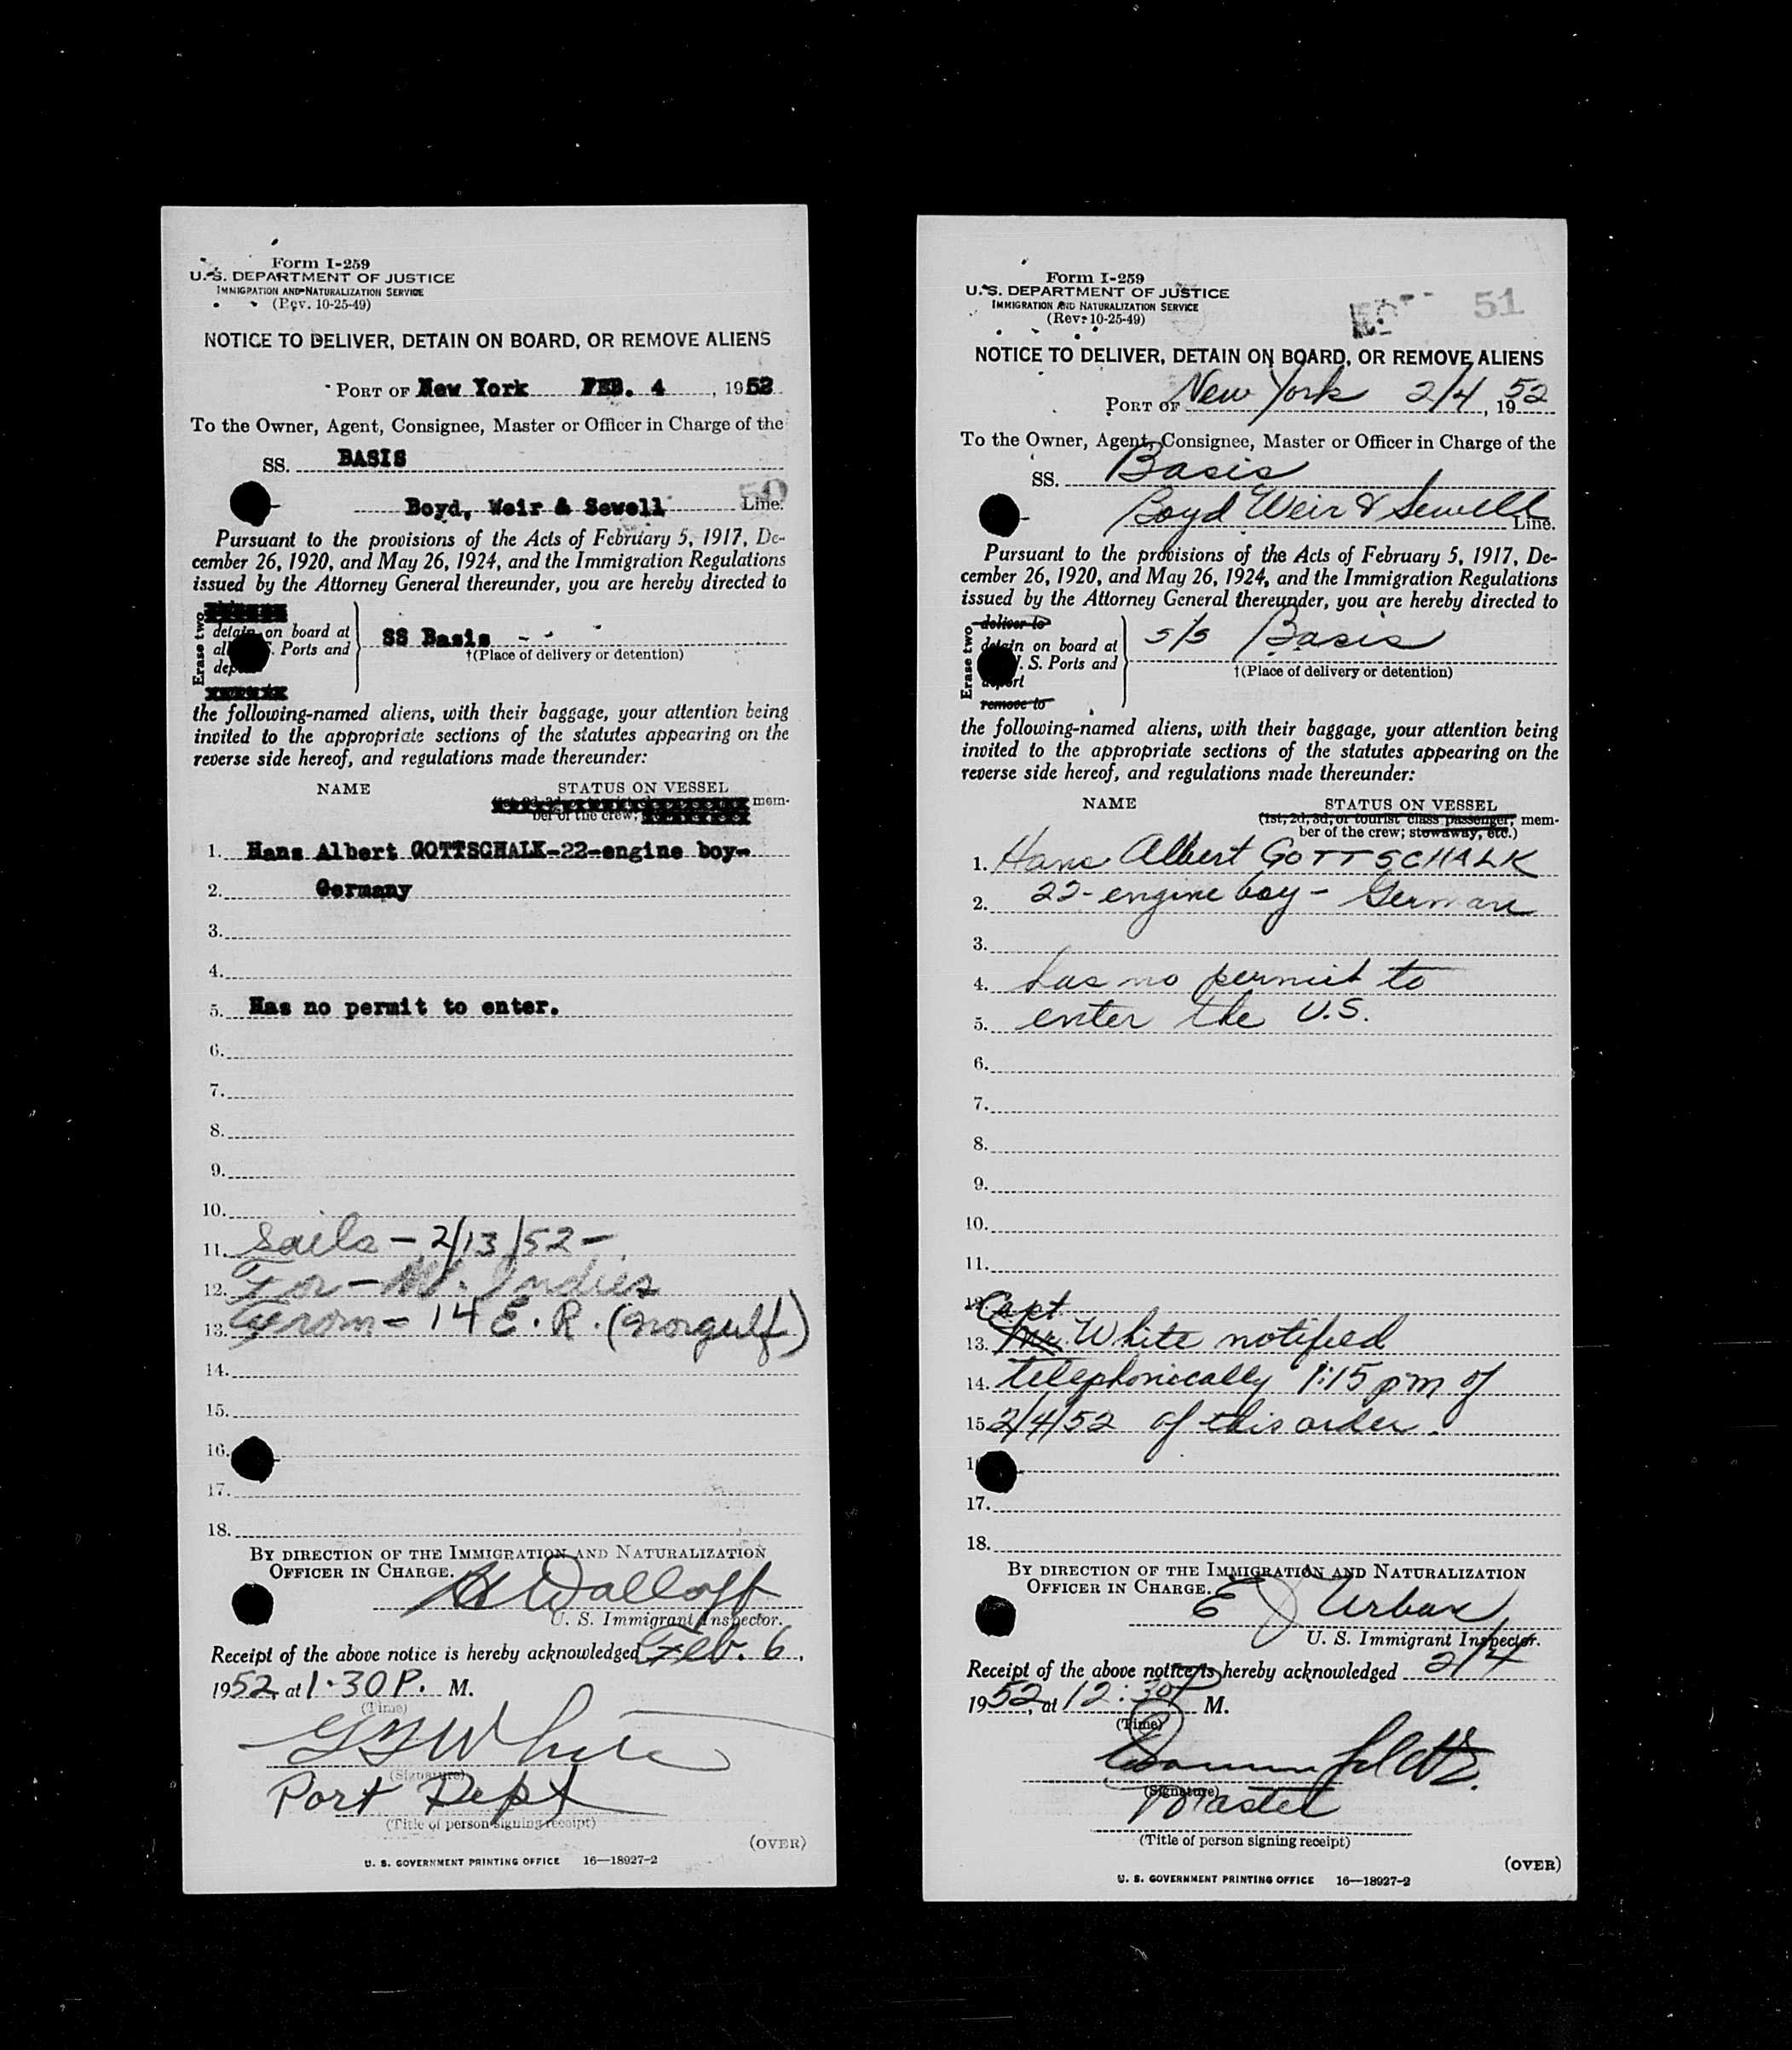 Form I-259
U. S. DEPARTMENT OF JUSTICE
IMMIGRATION AND NATURALIZATION SERVICE
(Rev. 10-25-49)
NOTICE TO DELIVER, DETAIN ON BOARD, OR REMOVE ALIENS
PORT OF New York FEB. 4, 1952
To the Owner, Agent, Consignee, Master or Officer in Charge of the
SS. BASIS
50
Boyd, Weir & Sewell Line.
Pursuant to the provisions of the Acts of February 5, 1917, De-
cember 26, 1920, and May 26, 1924, and the Immigration Regulations
issued by the Attorney General thereunder, you are hereby directed to
Erase two
detain on board at
all S. Ports and
dep
SS Basis - - -
†(Place of delivery or detention)
the following-named aliens, with their baggage, your attention being
invited to the appropriate sections of the statutes appearing on the
reverse side hereof, and regulations made thereunder:
NAME STATUS ON VESSEL
mem-
ber of the crew;
1. Hans Albert GOTTSCHALK-22-engine boy-
2. Germany
3.
4.
5. Has no permit to enter.
6.
7.
8.
9.
10.
11. Sails - 2/13/52 -
12. For - W. Indies
13. From - 14 E. R. (Norgulf)
14.
15.
16.
17.
18.
BY DIRECTION OF THE IMMIGRATION AND NATURALIZATION
OFFICER IN CHARGE.
U. S. Immigrant Inspector.
Receipt of the above notice is hereby acknowledged Feb. 6,
1952, at 1.30 P. M.
(Time)
White
(Signature)
Port Dept
(Title of person signing receipt)
(OVER)
U. S. GOVERNMENT PRINTING OFFICE 16—18927-2
Form I-259
U. S. DEPARTMENT OF JUSTICE
IMMIGRATION AND NATURALIZATION SERVICE
(Rev. 10-25-49)
51
NOTICE TO DELIVER, DETAIN ON BOARD, OR REMOVE ALIENS
PORT OF New York 2/4, 1952
To the Owner, Agent, Consignee, Master or Officer in Charge of the
SS. Basis
Boyd Weir & Sewell Line.
Pursuant to the provisions of the Acts of February 5, 1917, De-
cember 26, 1920, and May 26, 1924, and the Immigration Regulations
issued by the Attorney General thereunder, you are hereby directed to
Erase two
deliver to
detain on board at
. S. Ports and
deport
remove to
s/s Basis
†(Place of delivery or detention)
the following-named aliens, with their baggage, your attention being
invited to the appropriate sections of the statutes appearing on the
reverse side hereof, and regulations made thereunder:
NAME STATUS ON VESSEL
(1st, 2d, 3d, or tourist class passenger; mem-
ber of the crew; stowaway, etc.)
1. Hans Albert GOTTSCHALK
2. 22-engine boy - German
3.
4. has no permit to
5. enter the U.S.
6.
7.
8.
9.
10.
11.
12. Capt
13. Mr. White notified
14. telephonically 1:15 pm of
15. 2/4/52 of this order.
17.
18.
BY DIRECTION OF THE IMMIGRATION AND NATURALIZATION
OFFICER IN CHARGE.
E J Urban
U. S. Immigrant Inspector.
Receipt of the above notice is hereby acknowledged 2/4
1952, at 12:30 P M.
(Time)
(Signature)
Master
(Title of person signing receipt)
(OVER)
U. S. GOVERNMENT PRINTING OFFICE 16—18927-2